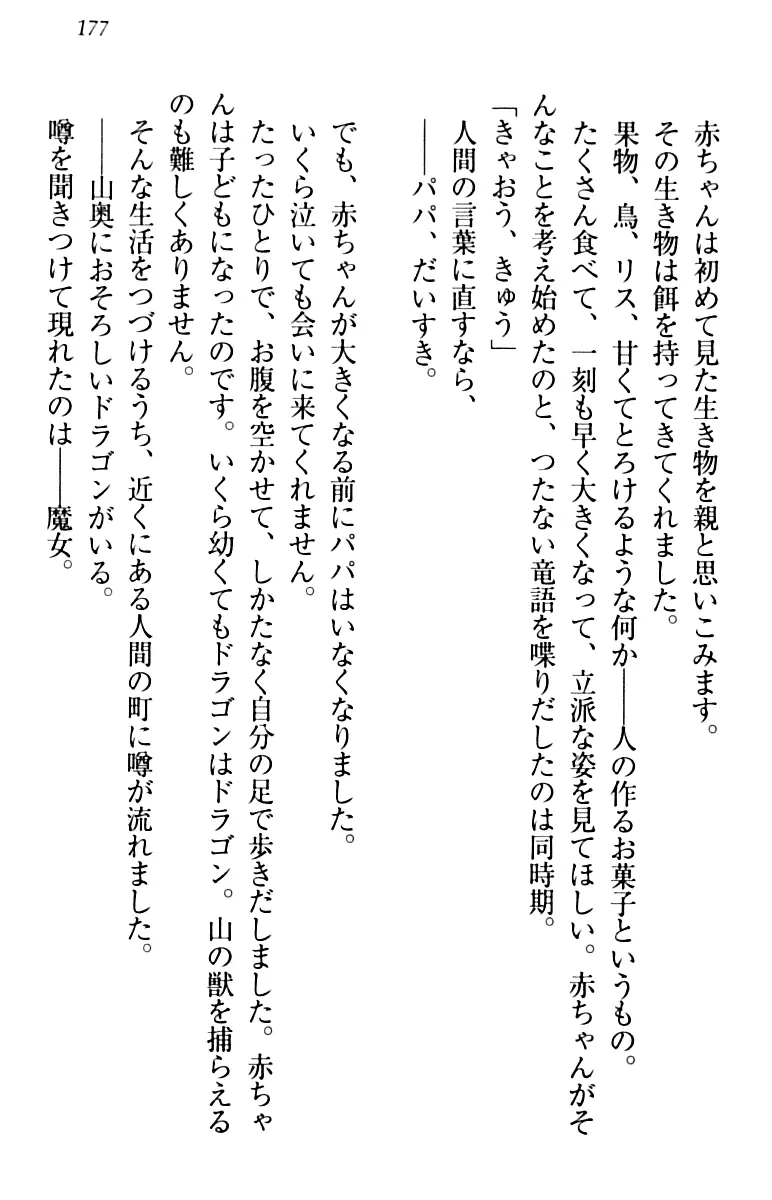 177
赤ちゃんは初めて見た生き物を親と思いこみます。
その生き物は餌を持ってきてくれました。
果物、鳥、リス、甘くてとろけるような何か――人の作るお菓子というもの。
たくさん食べて、一刻も早く大きくなって、立派な姿を見てほしい。赤ちゃんがそ
んなことを考え始めたのと、つたない竜語を喋りだしたのは同時期。
「きゃおう、きゅう」
人間の言葉に直すなら、
――パパ、だいすき。
でも、赤ちゃんが大きくなる前にパパはいなくなりました。
いくら泣いても会いに来てくれません。
たったひとりで、お腹を空かせて、しかたなく自分の足で歩きだしました。赤ちゃ
んは子どもになったのです。いくら幼くてもドラゴンはドラゴン。山の獣を捕らえる
のも難しくありません。
そんな生活をつづけるうち、近くにある人間の町に噂が流れました。
――山奥におそろしいドラゴンがいる。
噂を聞きつけて現れたのは――魔女。